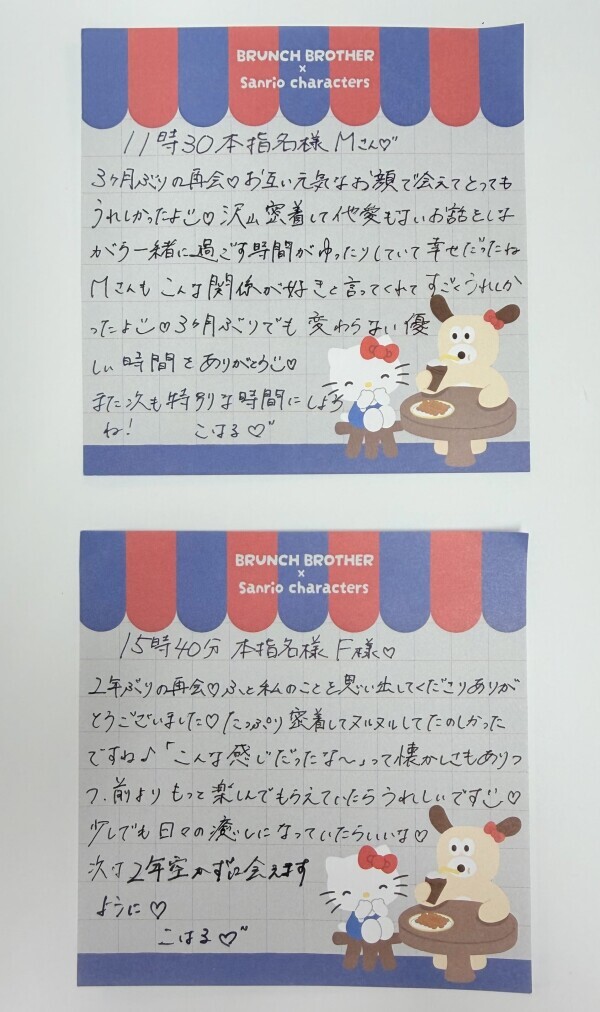 BRUNCH BROTHER
×
Sanrio characters
11時30本指名様 Mさん♡"
3ヶ月ぶりの再会♡お互い元気なお顔で会えてとっても
うれしかったよ☺♡沢山密着して他愛もないお話をしな
がら一緒に過ごす時間がゆったりしていて幸せだったね
Mさんもこんな関係が好きと言ってくれてすごくうれしか
ったよ☺♡3ヶ月ぶりでも変わらない優
しい時間をありがとう☺
また次も特別な時間にしよう
ね!
こはる♡"
BRUNCH BROTHER
×
Sanrio characters
15時40分 本指名様 F様♡
2年ぶりの再会♡ふと私のことを思い出してくださりありが
とうございました♡たっぷり密着してヌルヌルしてたのしかった
ですね♪「こんな感じだったな〜」って懐かしさもありつ
つ、前よりもっと楽しんでもらえていたらうれしいです☺♡
少しでも日々の癒しになっていたらいいな♡
次は2年空かずに会えます
ように♡
こはる♡"